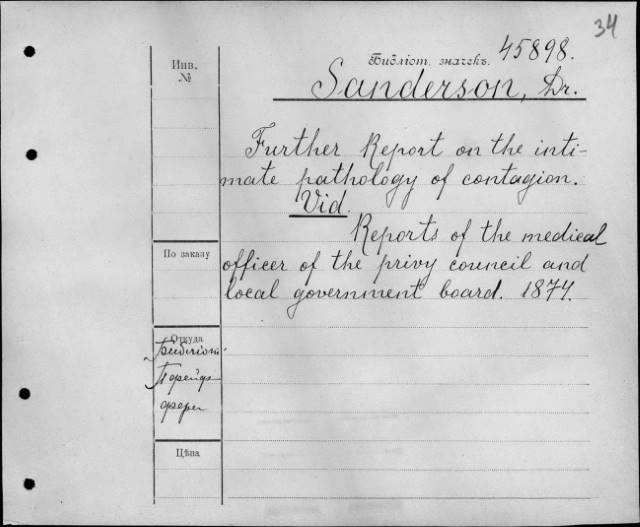 34
Библіот. значекъ. 45898.
Инв.
№
Sanderson, Dr.
Further Report on the inti-
mate pathology of contagion.
Vid.
Reports of the medical
По заказу
officer of the privy council and
local government board. 1874.
Откуда
Цѣна